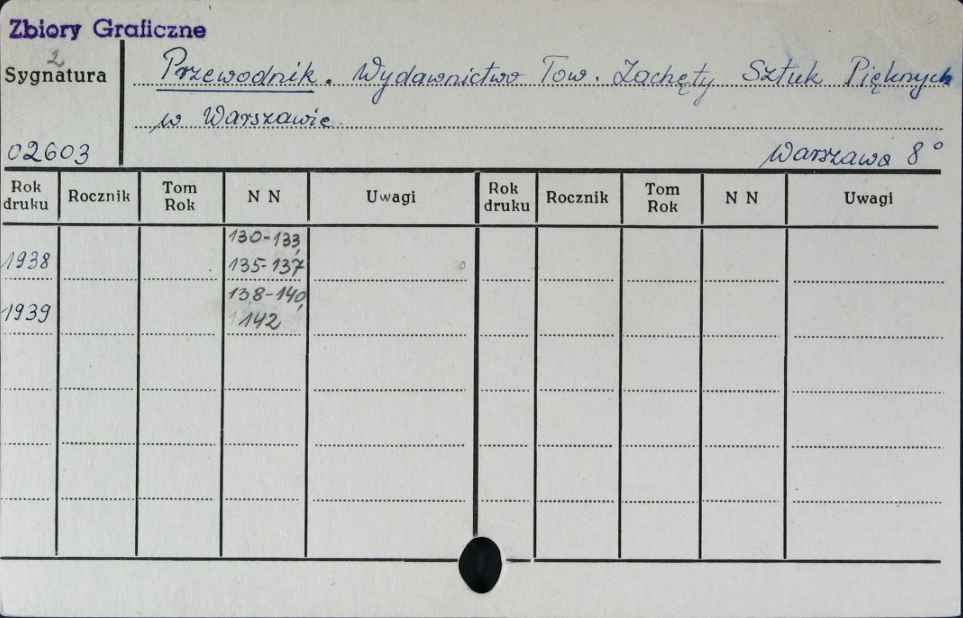 Zbiory Graficzne
2
Sygnatura
Przewodnik. Wydawnictwo Tow. Zachęty Sztuk Pięknych
w Warszawie.
02603
Warszawa 8°
Rok druku Rocznik Tom Rok N N Uwagi Rok druku Rocznik Tom Rok N N Uwagi
130-133,
1938 135-137
138-140,
1939 142